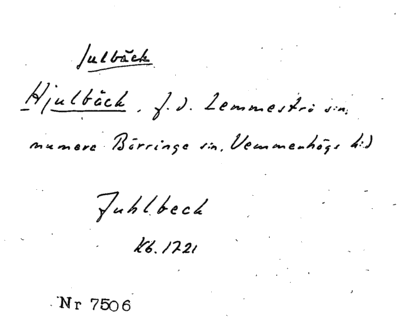 Julbäck
Hjulbäck, f. d. Lemmeströ sn,
numera Börringe sn, Vemmenhögs hd
Juhlbeck
Kb. 1721
Nr 7506